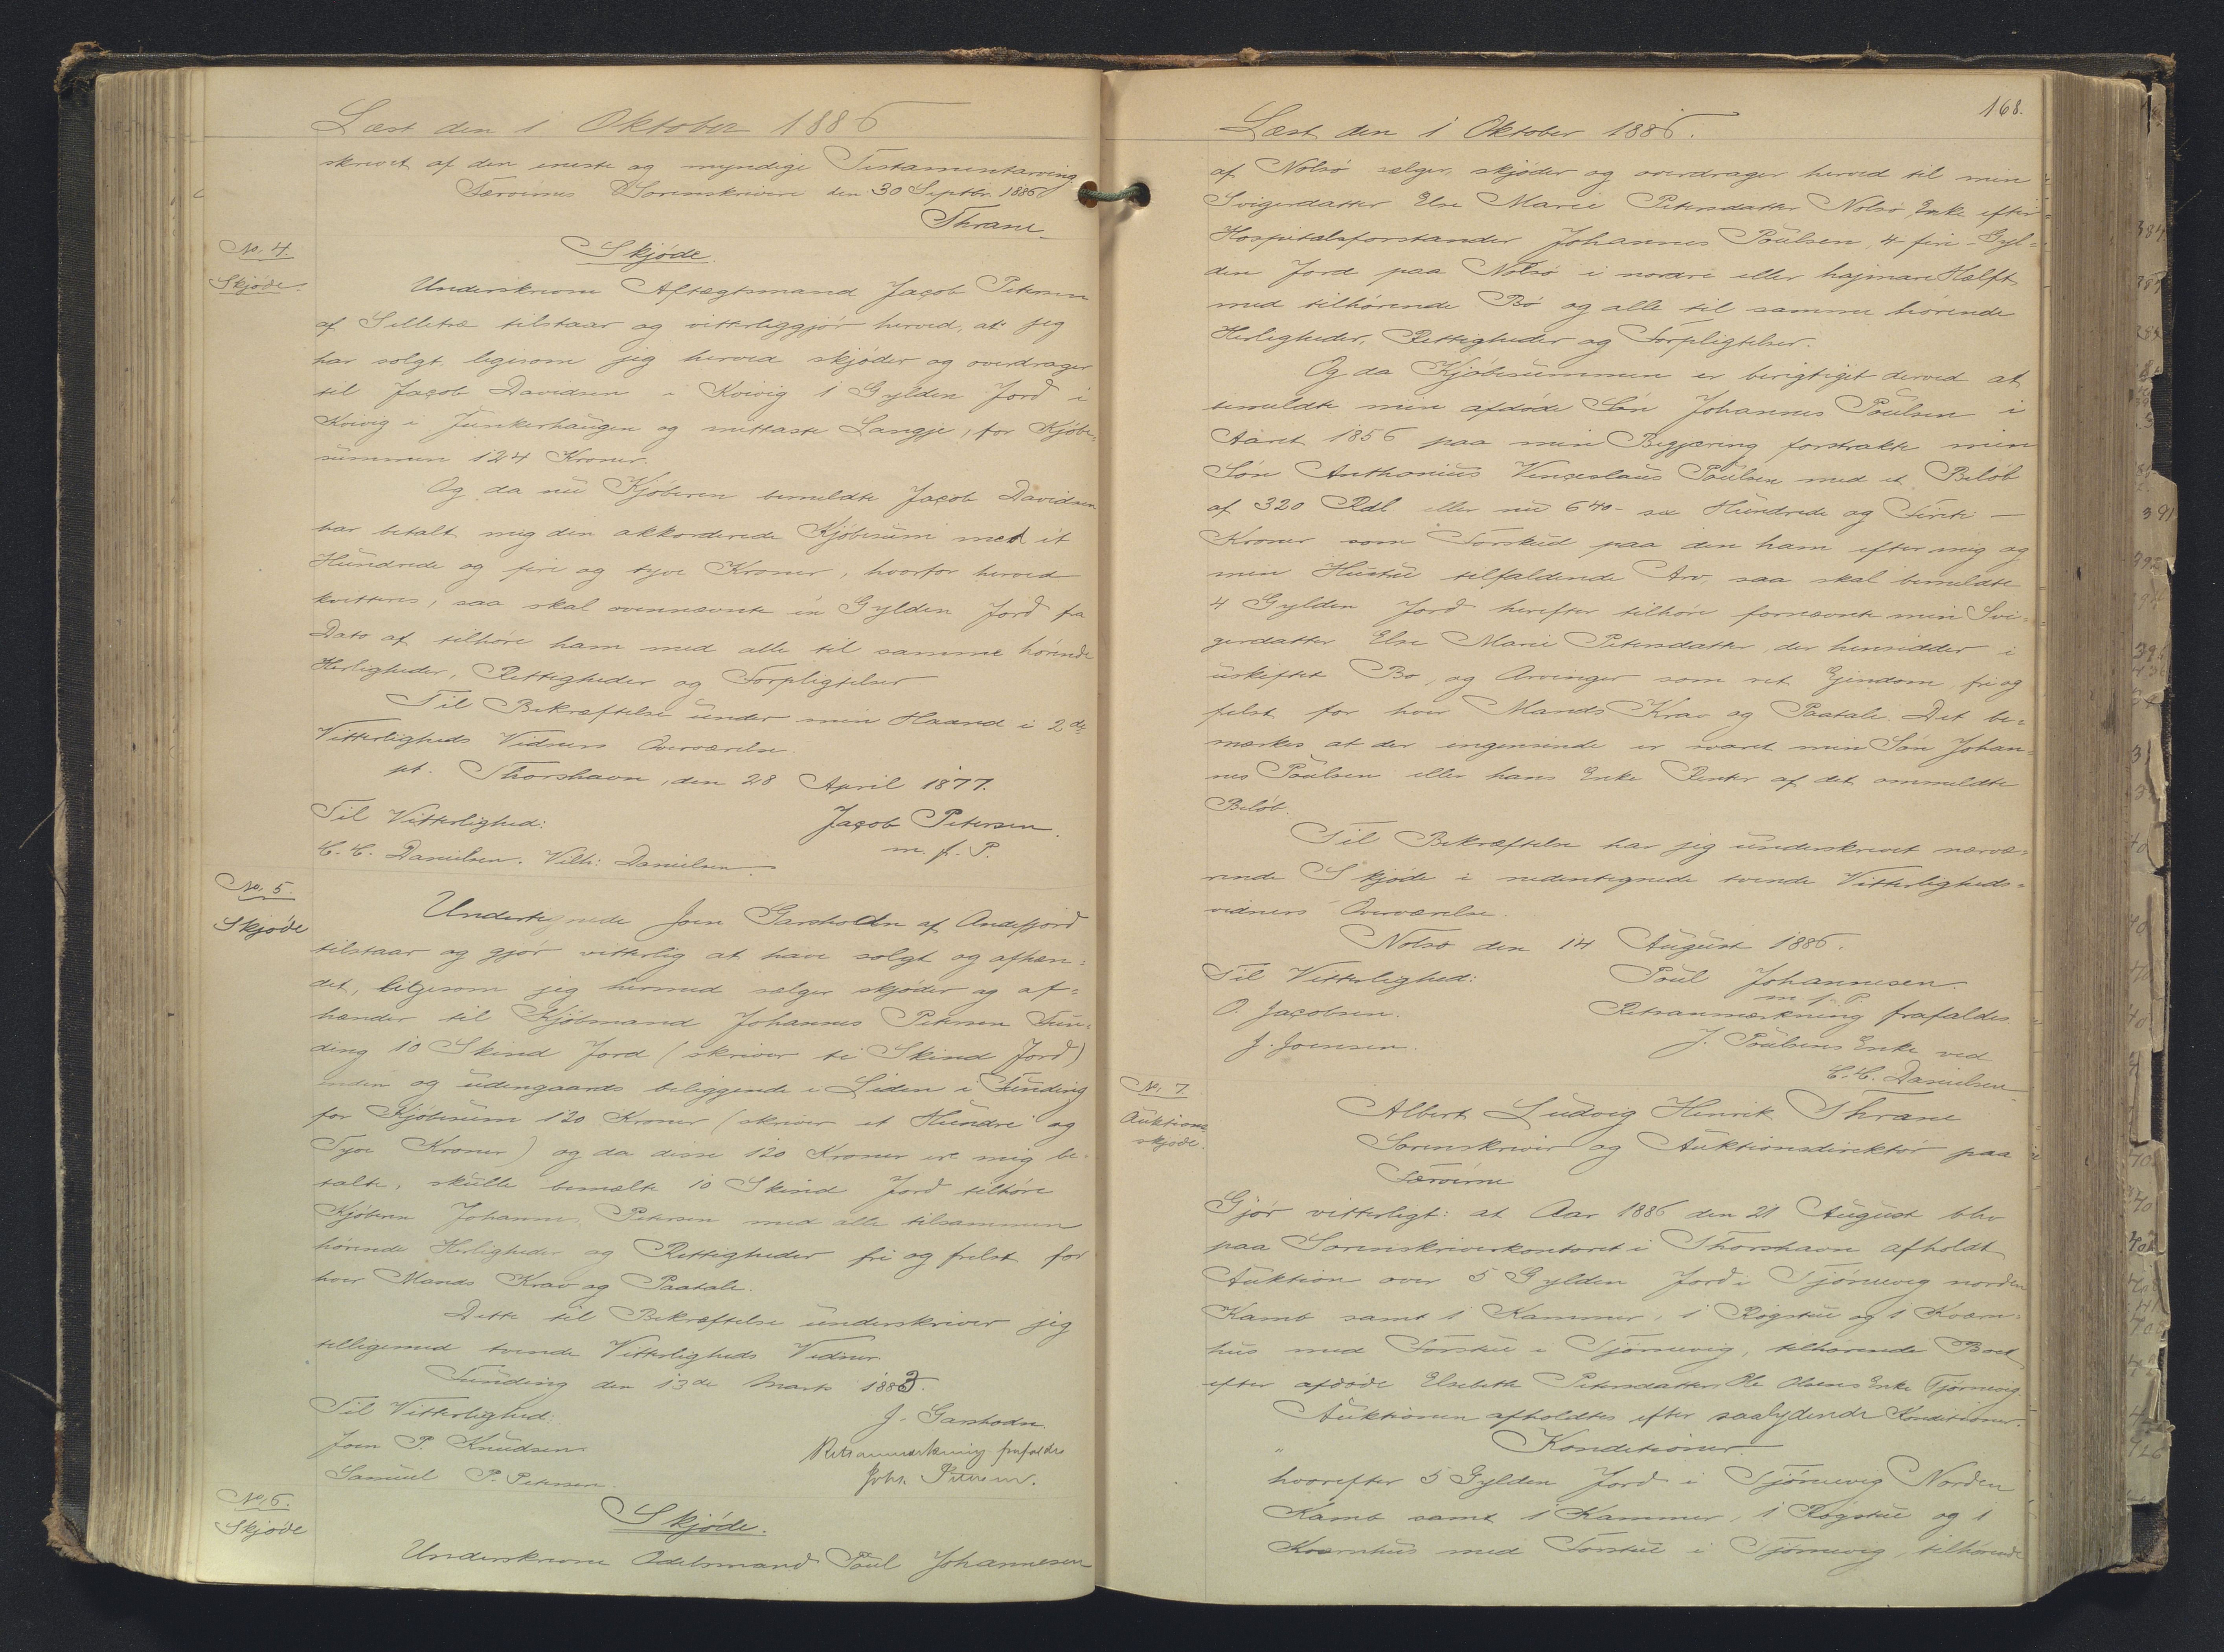 Læst den 1 Oktober 1886
skrevet af den eneste og myndige Testamentarving
Færøernes Sorenskriveri den 30 Septbr. 1886
Thrane
No. 4.
Skjøde.
Skjøde.
Underskrevne Aftægtsmand Jacob Petersen
af Selletræ tilstaar og vitterliggjør herved, at jeg
har solgt ligesom jeg herved skjøder og overdrager
til Jacob Davidsen i Kvivig 1 Gylden Jord i
Kvivig i Junkerhaugen og mettaste Langje, for Kjøbe-
summen 124 Kroner.
Og da nu Kjøberen bemeldte Jacob Davidsen
har betalt mig den akkorderede Kjøbesum med et
Hundrede og fire og tyve Kroner, hvorfor herved
kvitteres, saa skal ovennævnte en Gylden Jord fra
Dato af tilhøre ham med alle til samme hørende
Herligheder, Rettigheder og Forpligtelser
Til Bekræftelse under min Haand i 2de
Vitterligheds Vidners Overværelse.
pt. Thorshavn, den 28 April 1877.
Til Vitterlighed:
Jacob Petersen.
m. f. P.
C. C. Danielsen. Vilh: Danielsen.
No. 5.
Skjøde
Undertegnede Joen Garshodn af Andefjord
tilstaar og gjør vitterlig at have solgt og afhæn-
det, ligesom jeg hermed sælger skjøder og af-
hænder til Kjøbmand Johannes Petersen Fun-
ding 10 Skind Jord (skriver ti Skind Jord)
inden og udengaards beliggende i Liden i Funding
for Kjøbesum 120 Kroner (skriver et Hundre og
Tyve Kroner) og da disse 120 Kroner ere mig be-
talte, skulle bemælte 10 Skind Jord tilhøre
Kjøberen Johannes Petersen med alle tilsammen
hørende Herligheder og Rettigheder fri og frelst for
hver Mands Krav og Paatale.
Dette til Bekræftelse underskriver jeg
tilligemed tvende Vitterligheds Vidner.
Funding den 13de Marts 1883.
Til Vitterlighed:
J. Garshodn
Joen P. Knudsen
Retsanmærkning frafaldes
Samuel P. Petersen.
Johs. Petersen.
No. 6.
Skjøde
Skjøde.
Underskrevne Odelsmand Poul Johannesen
168.
Læst den 1 Oktober 1886.
af Nolsø sælger, skjøder og overdrager herved til min
Svigerdatter Else Marie Petersdatter Nolsø, Enke efter
Hospitalsforstander Johannes Poulsen, 4-fire-Gyl-
den Jord paa Nolsø i nordre eller hajmare Hælft
med tilhørende Bø og alle til samme hørende
Herligheder, Rettigheder og Forpligtelser.
Og da Kjøbesummen er berigtiget derved at
bemeldte min afdøde Søn Johannes Poulsen i
Aaret 1856 paa min Begjæring forstrakte min
Søn Anthonius Venceslaus Poulsen med et Beløb
af 320 Rdl eller nu 640 - sex Hundrede og Firti -
Kroner som Forskud paa den ham efter mig og
min Hustru tilfaldende Arv, saa skal bemeldte
4 Gylden Jord herefter tilhøre fornævnte min Svi-
gerdatter Else Marie Petersdatter, der hensidder i
uskiftet Bo, og Arvinger som ret Ejendom fri og
felst for hver Mands Krav og Paatale. Det be-
mærkes at der ingensinde er svaret min Søn Johan-
nes Poulsen eller hans Enke Renter af det ommeldte
Beløb.
Til Bekræftelse har jeg underskrevet nærvæ-
rende Skjøde i nedentegnede tvende Vitterligheds-
vidners Overværelse.
Nolsø den 14 August 1886.
Til Vitterlighed:
Poul Johannesen
m. f. P.
O. Jacobsen.
Retsanmærkning frafaldes
J. Joensen.
J. Poulsens Enke ved
C. C. Danielsen
No. 7
Auktions
skjøde.
Albert Ludvig Henrik Thrane
Sorenskriver og Auktionsdirektør paa
Færøerne
Gjør vitterligt: at Aar 1886 den 21 August blev
paa Sorenskriverkontoret i Thorshavn afholdt
Auktion over 5 Gylden Jord i Tjørnevig norden
Kamb samt 1 Kammer, 1 Røgstue og 1 Kværn-
hus med Forstue i Tjørnevig, tilhørende Boet
efter afdøde Elsebeth Petersdatter, Ole Olsens Enke Tjørnevig.
Auktionen afholdtes efter saalydende Konditioner.
" Konditioner.
hvorefter 5 Gylden Jord i Tjørnevig Norden
Kamb samt 1 Kammer, 1 Røgstue og 1
Kværnhus med Forstue i Tjørnevig, tilhørende